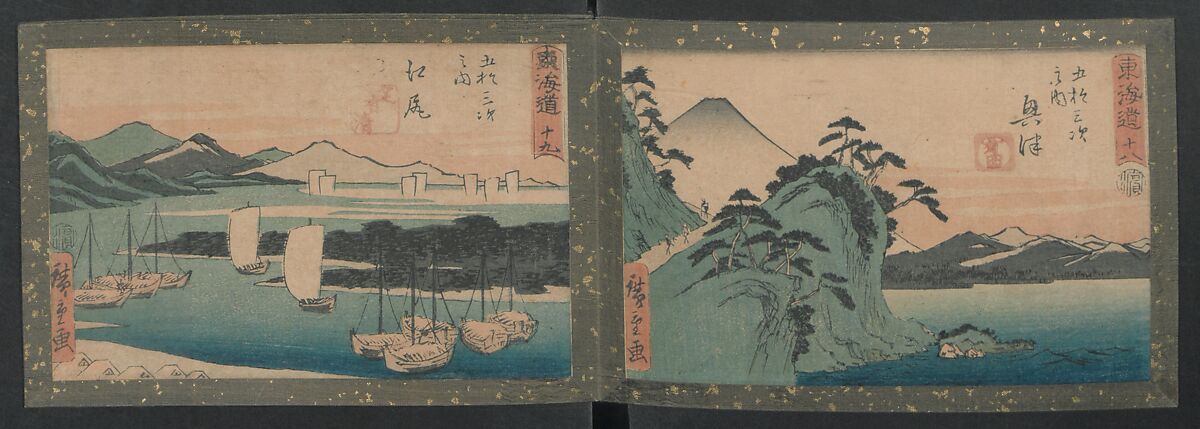 東海道 十八
五拾三次
之内
奥津
廣重画
東海道 十九
五拾三次
之内
江尻
廣重画